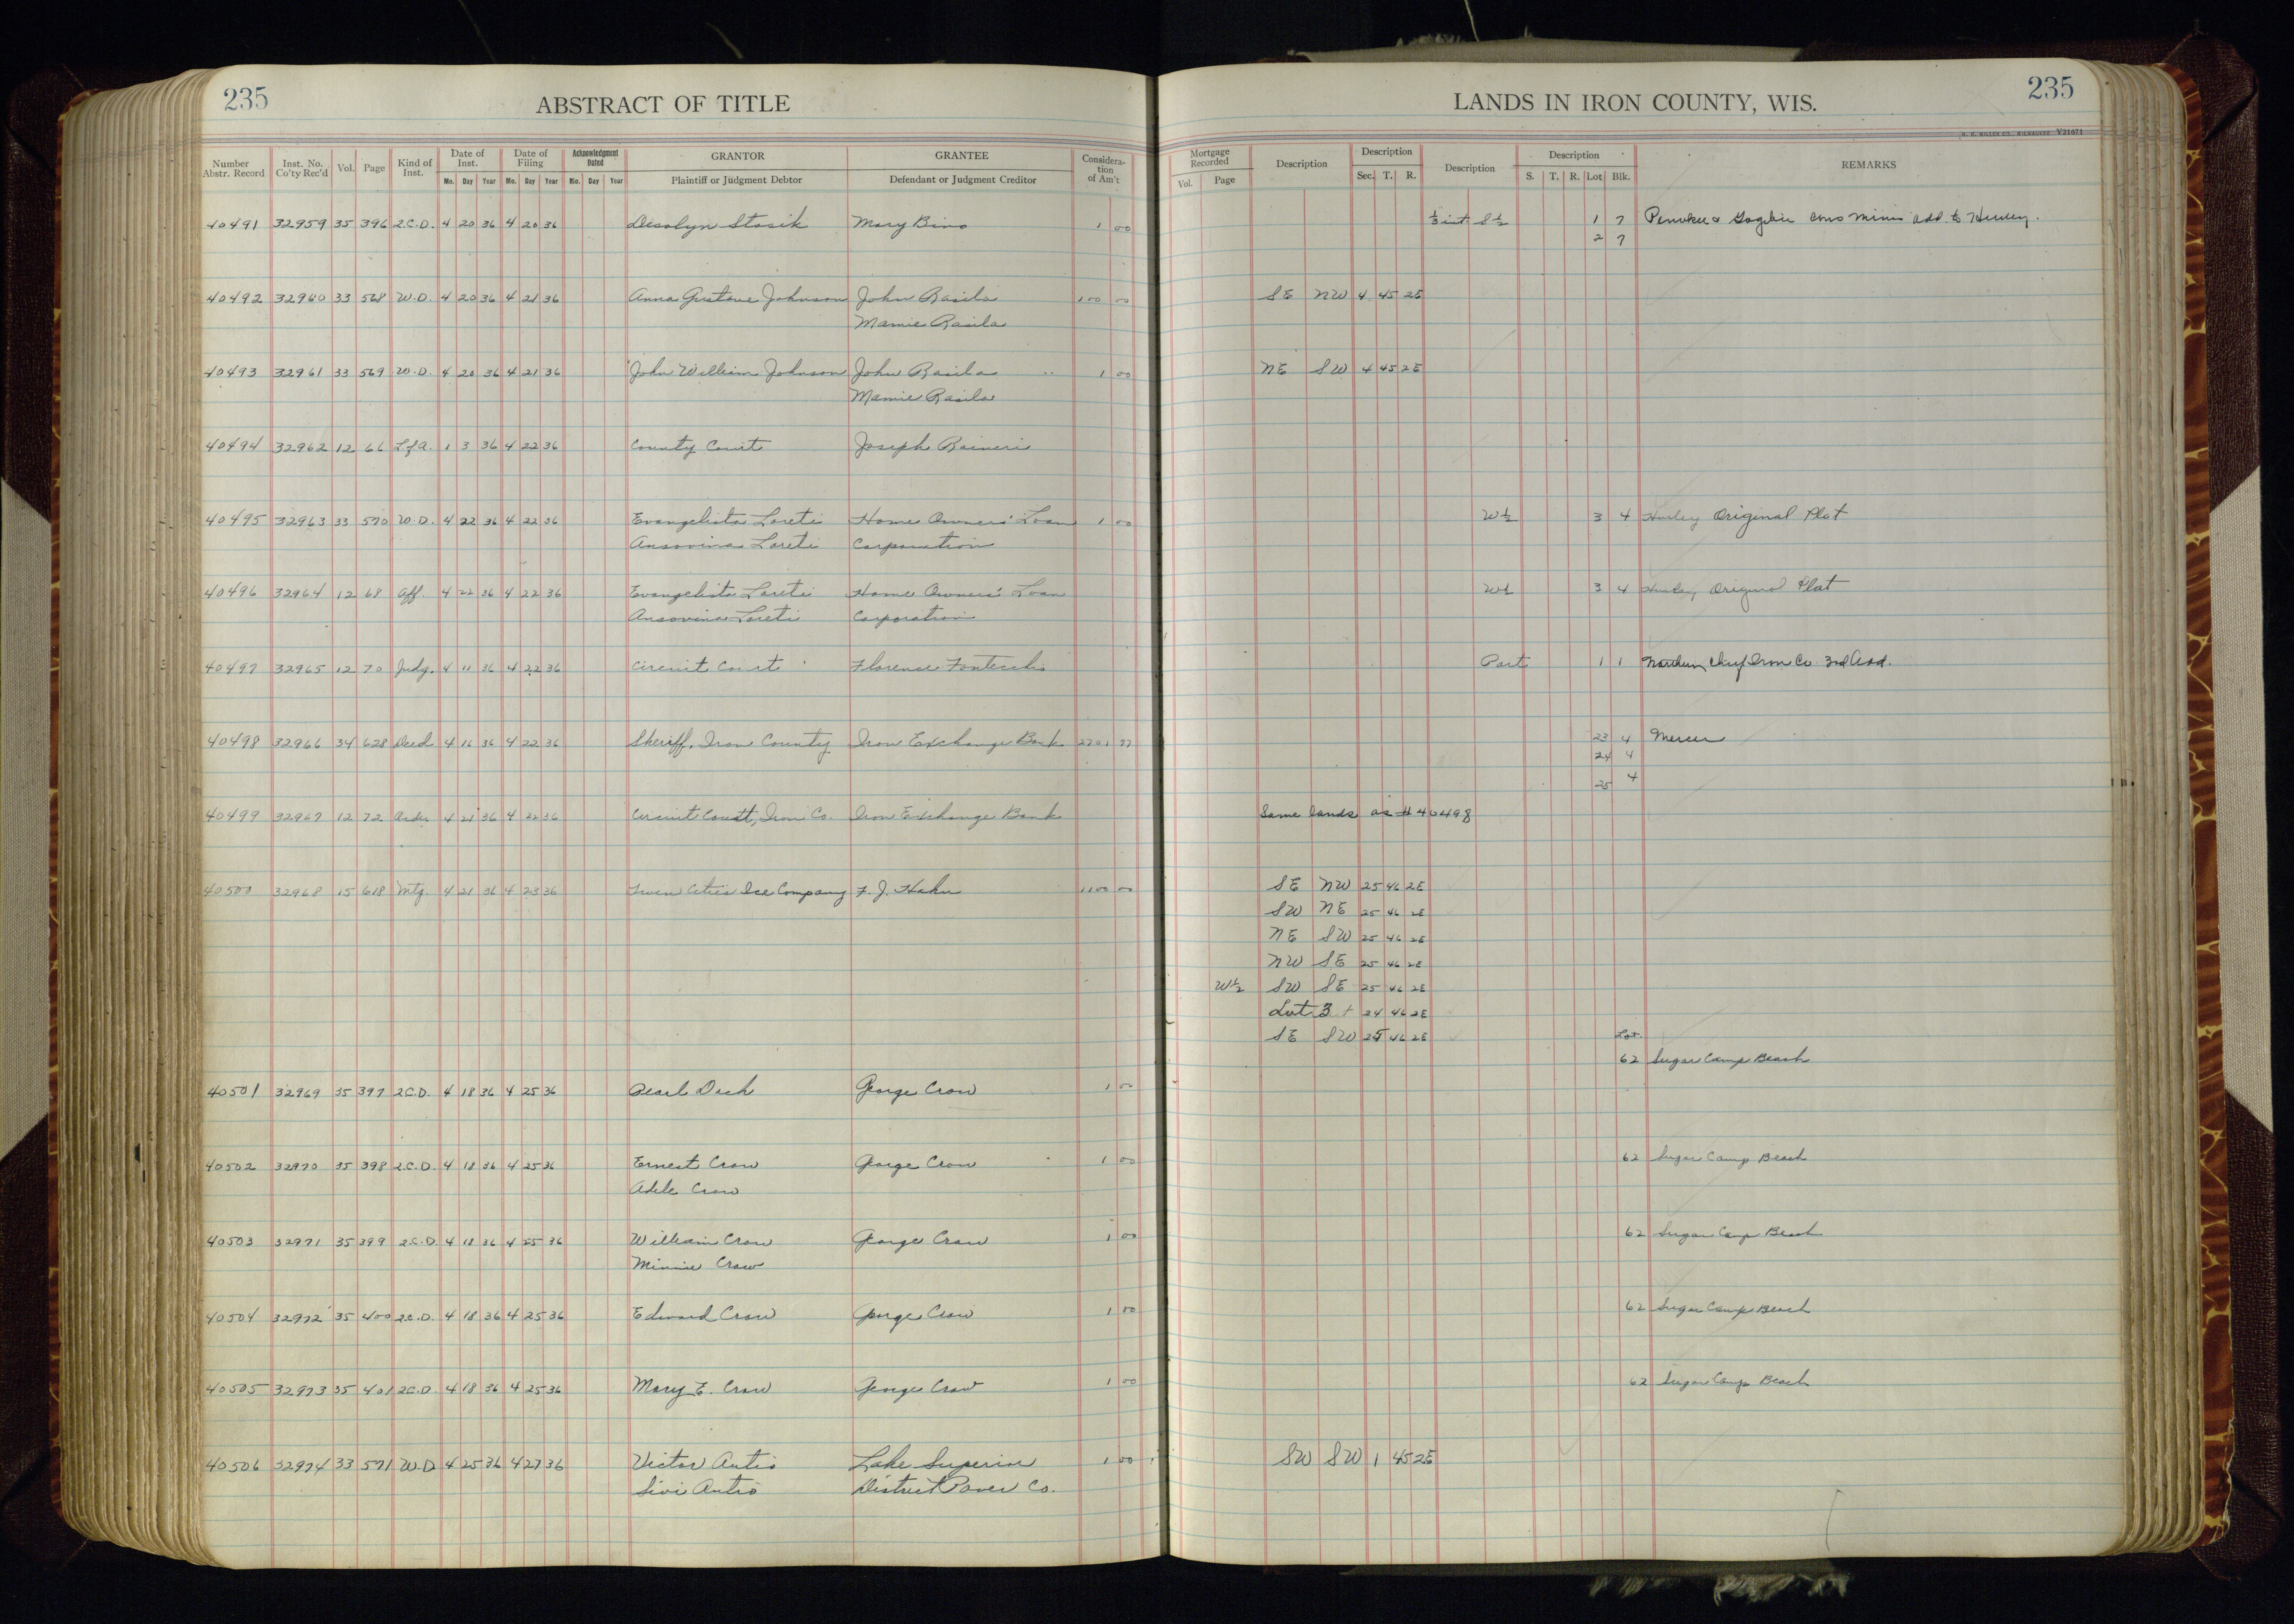 235
ABSTRACT OF TITLE
LANDS IN IRON COUNTY, WIS.
235
H. C. MILLER CO., MILWAUKEE Y21671
Number Abstr. Record Inst. No. Co'ty Rec'd Vol. Page Kind of Inst. Date of Inst. Date of Filing Acknowledgment Dated GRANTOR GRANTEE Considera-tion of Am't Mortgage Recorded Description Description Description Description REMARKS
Mo. Day Year Mo. Day Year Mo. Day Year Plaintiff or Judgment Debtor Defendant or Judgment Creditor Vol. Page Sec. T. R. S. T. R. Lot Blk.
40491 32959 35 396 2.C.D. 4 20 36 4 20 36 Stasik Mary Bino 1 00 1/3 int S½ 1 7 Penokee & Gogebic Cons Mines add. to Hurley.
2 7
40492 32960 33 568 W.D. 4 20 36 4 21 36 Anna Gustava Johnson John Rasila 100 00 SE NW 4 45 2E
Mamie Rasila
40493 32961 33 569 W.D. 4 20 36 4 21 36 John William Johnson John Rasila 1 00 NE SW 4 45 2E
Mamie Rasila
40494 32962 12 66 L.of A. 1 3 36 4 22 36 County Court Joseph Raineri
40495 32963 33 570 W.D. 4 22 36 4 22 36 Evangelista Loreti Home Owners' Loan 1 00 W½ 3 4 Hurley Original Plat
Ansovina Loreti Corporation
40496 32964 12 68 Aff. 4 22 36 4 22 36 Evangelista Loreti Home Owners' Loan W½ 3 4 Hurley Original Plat
Ansovina Loreti Corporation
40497 32965 12 70 Judg. 4 11 36 4 22 36 Circuit Court Florence Fontecchio Part 1 1 Northern Chief Iron Co. 3rd Add.
40498 32966 34 628 Deed 4 16 36 4 22 36 Sheriff, Iron County Iron Exchange Bank 23 4 Mercer
24 4
25 4
40499 32967 12 72 Order 4 21 36 4 22 36 Circuit Court, Iron Co. Iron Exchange Bank Same lands as # 40498
40500 32968 15 618 Mtg. 4 21 36 4 23 36 Twin Cities Ice Company F. J. Hahn 1100 00 SE NW 25 46 2E
SW NE 25 46 2E
NE SW 25 46 2E
NW SE 25 46 2E
W½ SW SE 25 46 2E
Lot 3 + 24 46 2E
SE SW 25 46 2E Lot
62 Sugar Camp Beach
40501 32969 35 397 2.C.D. 4 18 36 4 25 36 Pearl Dach George Crow 1 00
40502 32970 35 398 2.C.D. 4 18 36 4 25 36 Ernest Crow George Crow 1 00 62 Sugar Camp Beach
Adele Crow
40503 32971 35 399 2.C.D. 4 18 36 4 25 36 William Crow George Crow 1 00 62 Sugar Camp Beach
Minnie Crow
40504 32972 35 400 2.C.D. 4 18 36 4 25 36 Edward Crow George Crow 1 00 62 Sugar Camp Beach
40505 32973 35 401 2.C.D. 4 18 36 4 25 36 Mary E. Crow George Crow 1 00 62 Sugar Camp Beach
40506 32974 33 571 W.D. 4 25 36 4 27 36 Victor Autio Lake Superior 1 00 SW SW 1 45 2E
Autio District Power Co.